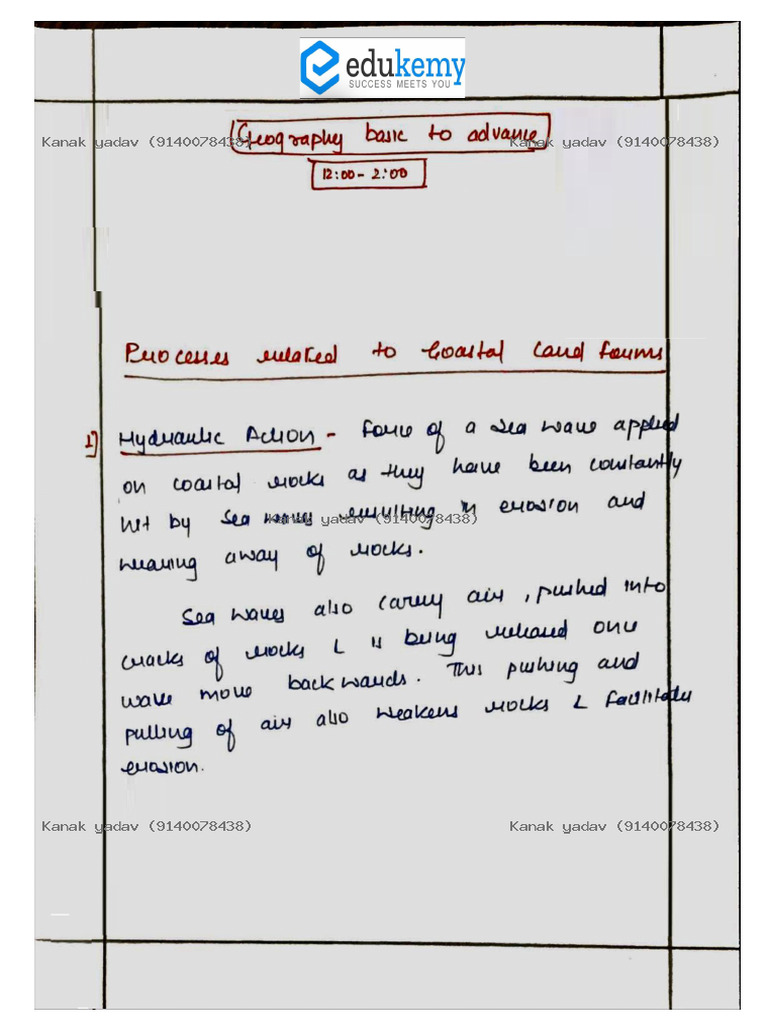 edukemy
SUCCESS MEETS YOU
Geography basic to advance
Kanak yadav (9140078438) Kanak yadav (9140078438)
12:00 - 2:00
Processes related to Coastal Land forms
1) Hydraulic Action - Force of a sea wave applied
on coastal rocks as they have been constantly
hit by sea waves resulting in erosion and
Kanak yadav (9140078438)
wearing away of rocks.
Sea waves also carry air, pushed into
cracks of rocks & is being released once
wave move backwards. This pushing and
pulling of air also weakens rocks & facilitates
erosion.
Kanak yadav (9140078438) Kanak yadav (9140078438)